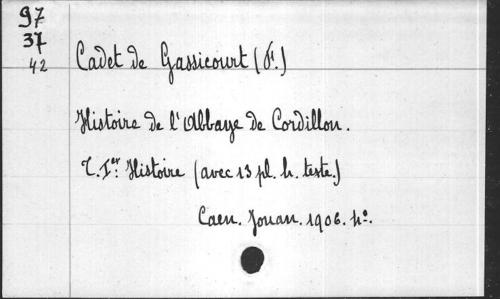 97
37
42
Cadet de Gassicourt (F.)
Histoire de l'Abbaye de Cordillon.
T. Ier. Histoire (avec 13 pl. h. texte.)
Caen. Jouan. 1906. 4o.